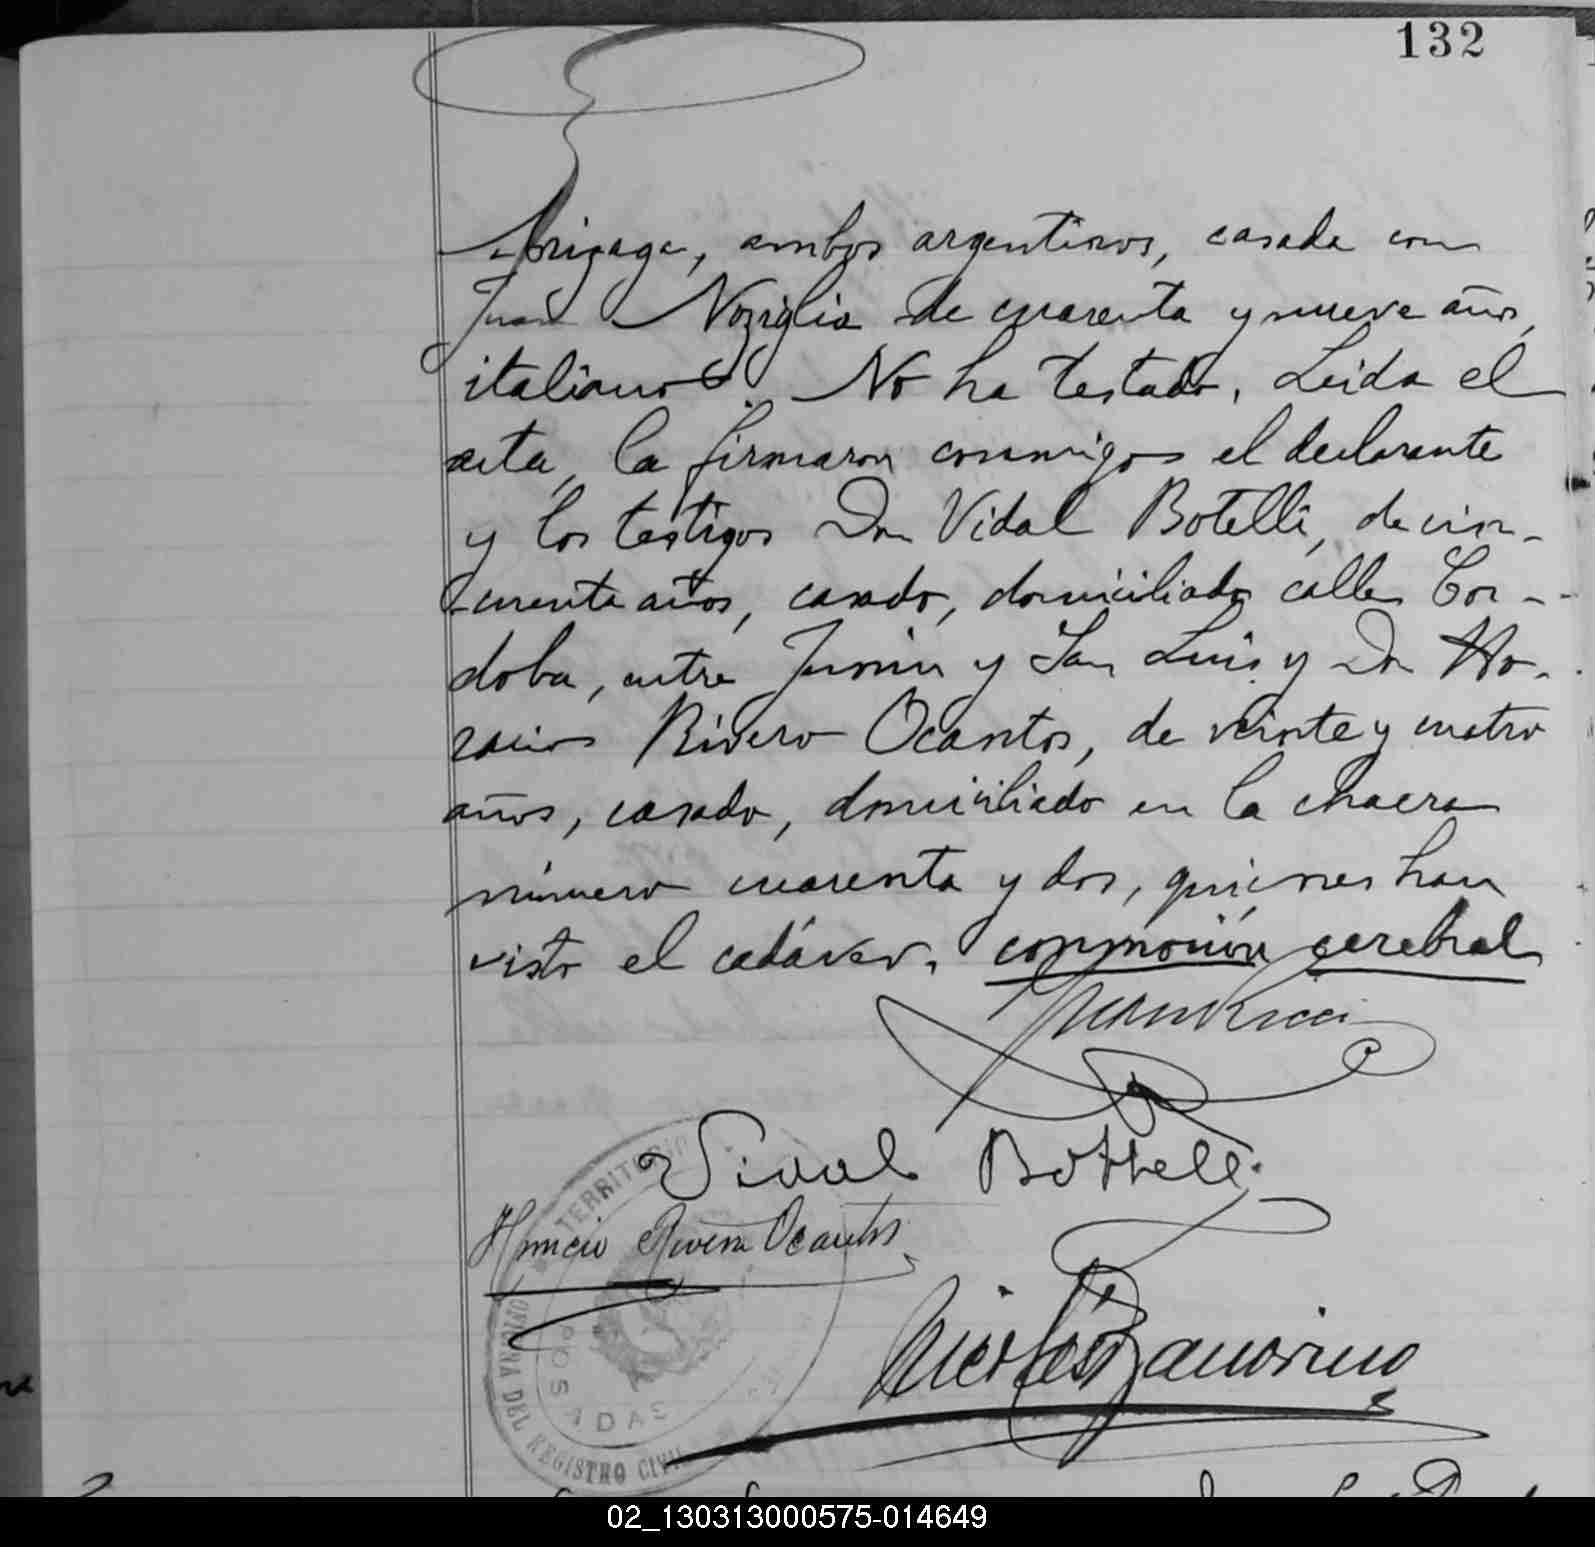 132
Arizaga, ambos argentinos, casada con
Juan Noziglia de cuarenta y nueve años,
italiano. No ha testado. Leida el
acta, la firmaron conmigo el declarante
y los testigos Don Vidal Botelli, de cin-
cuenta años, casado, domiciliado calle Cor-
doba, entre Junin y San Luis y Don Ho-
racio Rivero Ocantos, de veinte y cuatro
años, casado, domiciliado en la chacra
número cuarenta y dos, quienes han
visto el cadáver. conmoción cerebral
Juan Ricci
Vidal Bottelli
Horacio Rivero Ocantos
Nicolás
TERRITORIO
OFICINA DEL REGISTRO CIVIL
POSADAS
02_130313000575-014649